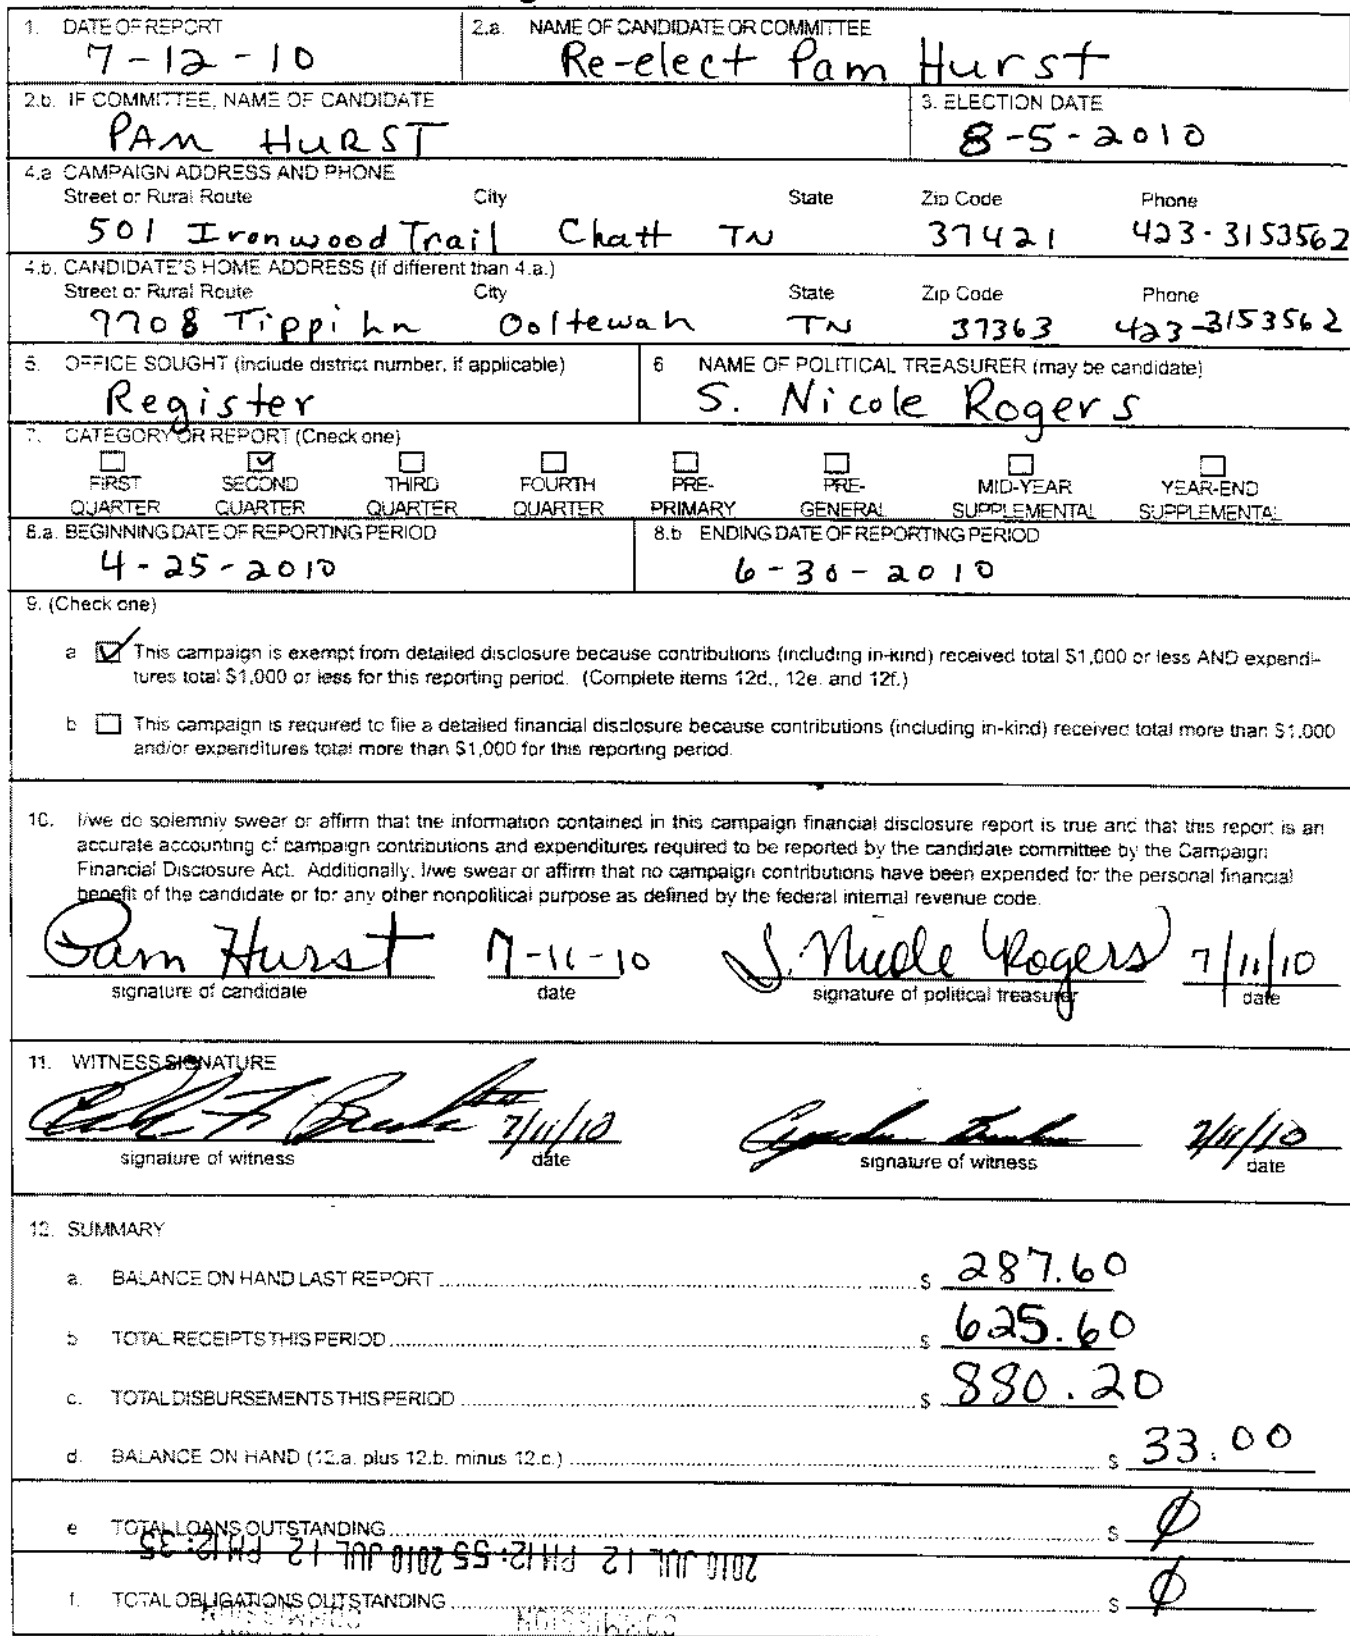 1. DATE OF REPORT 2.a. NAME OF CANDIDATE OR COMMITTEE
7-12-10 Re-elect Pam Hurst
2.b. IF COMMITTEE, NAME OF CANDIDATE 3. ELECTION DATE
PAM HURST 8-5-2010
4.a CAMPAIGN ADDRESS AND PHONE
Street or Rural Route City State Zip Code Phone
501 Ironwood Trail Chatt TN 37421 423-3153562
4.b. CANDIDATE'S HOME ADDRESS (if different than 4.a.)
Street or Rural Route City State Zip Code Phone
7708 Tippi Ln Ooltewah TN 37363 423-3153562
5. OFFICE SOUGHT (include district number, if applicable) 6 NAME OF POLITICAL TREASURER (may be candidate)
Register S. Nicole Rogers
7. CATEGORY OR REPORT (Check one)
FIRST SECOND THIRD FOURTH PRE- PRE- MID-YEAR YEAR-END
QUARTER QUARTER QUARTER QUARTER PRIMARY GENERAL SUPPLEMENTAL SUPPLEMENTAL
8.a. BEGINNING DATE OF REPORTING PERIOD 8.b ENDING DATE OF REPORTING PERIOD
4-25-2010 6-30-2010
9. (Check one)
a This campaign is exempt from detailed disclosure because contributions (including in-kind) received total $1,000 or less AND expendi-
tures total $1,000 or less for this reporting period. (Complete items 12d., 12e. and 12f.)
b This campaign is required to file a detailed financial disclosure because contributions (including in-kind) received total more than $1,000
and/or expenditures total more than $1,000 for this reporting period.
10. I/we do solemnly swear or affirm that the information contained in this campaign financial disclosure report is true and that this report is an
accurate accounting of campaign contributions and expenditures required to be reported by the candidate committee by the Campaign
Financial Disclosure Act. Additionally, I/we swear or affirm that no campaign contributions have been expended for the personal financial
benefit of the candidate or for any other nonpolitical purpose as defined by the federal internal revenue code.
Pam Hurst 7-11-10 S. Nicole Rogers 7/11/10
signature of candidate date signature of political treasurer date
11. WITNESS SIGNATURE
7/11/10 7/11/10
signature of witness date signature of witness date
12. SUMMARY
a. BALANCE ON HAND LAST REPORT $ 287.60
b TOTAL RECEIPTS THIS PERIOD $ 625.60
c. TOTAL DISBURSEMENTS THIS PERIOD $ 880.20
d. BALANCE ON HAND (12.a. plus 12.b. minus 12.c.) $ 33.00
e TOTAL LOANS OUTSTANDING $ Ø
2010 JUL 12 PM 12:55 2010 JUL 12 PM 12:35
f. TOTAL OBLIGATIONS OUTSTANDING $ Ø
COMMISSION COMMISSION